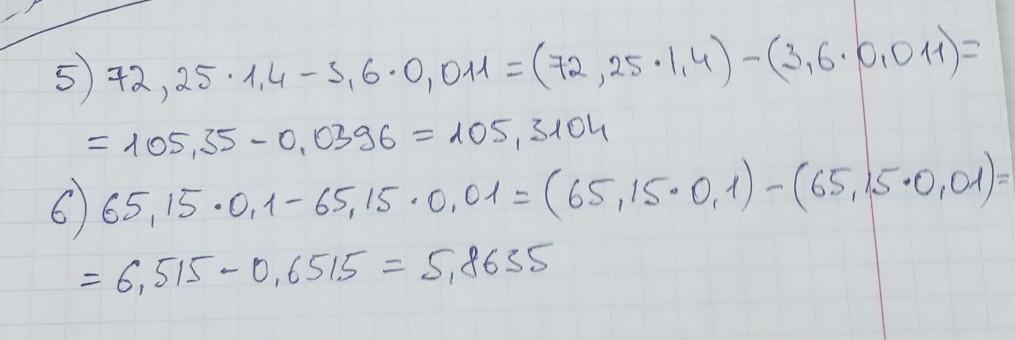 5) 72,25 · 1,4 - 3,6 · 0,011 = (72,25 · 1,4) - (3,6 · 0,011) =
= 105,35 - 0,0396 = 105,3104
6) 65,15 · 0,1 - 65,15 · 0,01 = (65,15 · 0,1) - (65,15 · 0,01) =
= 6,515 - 0,6515 = 5,8635